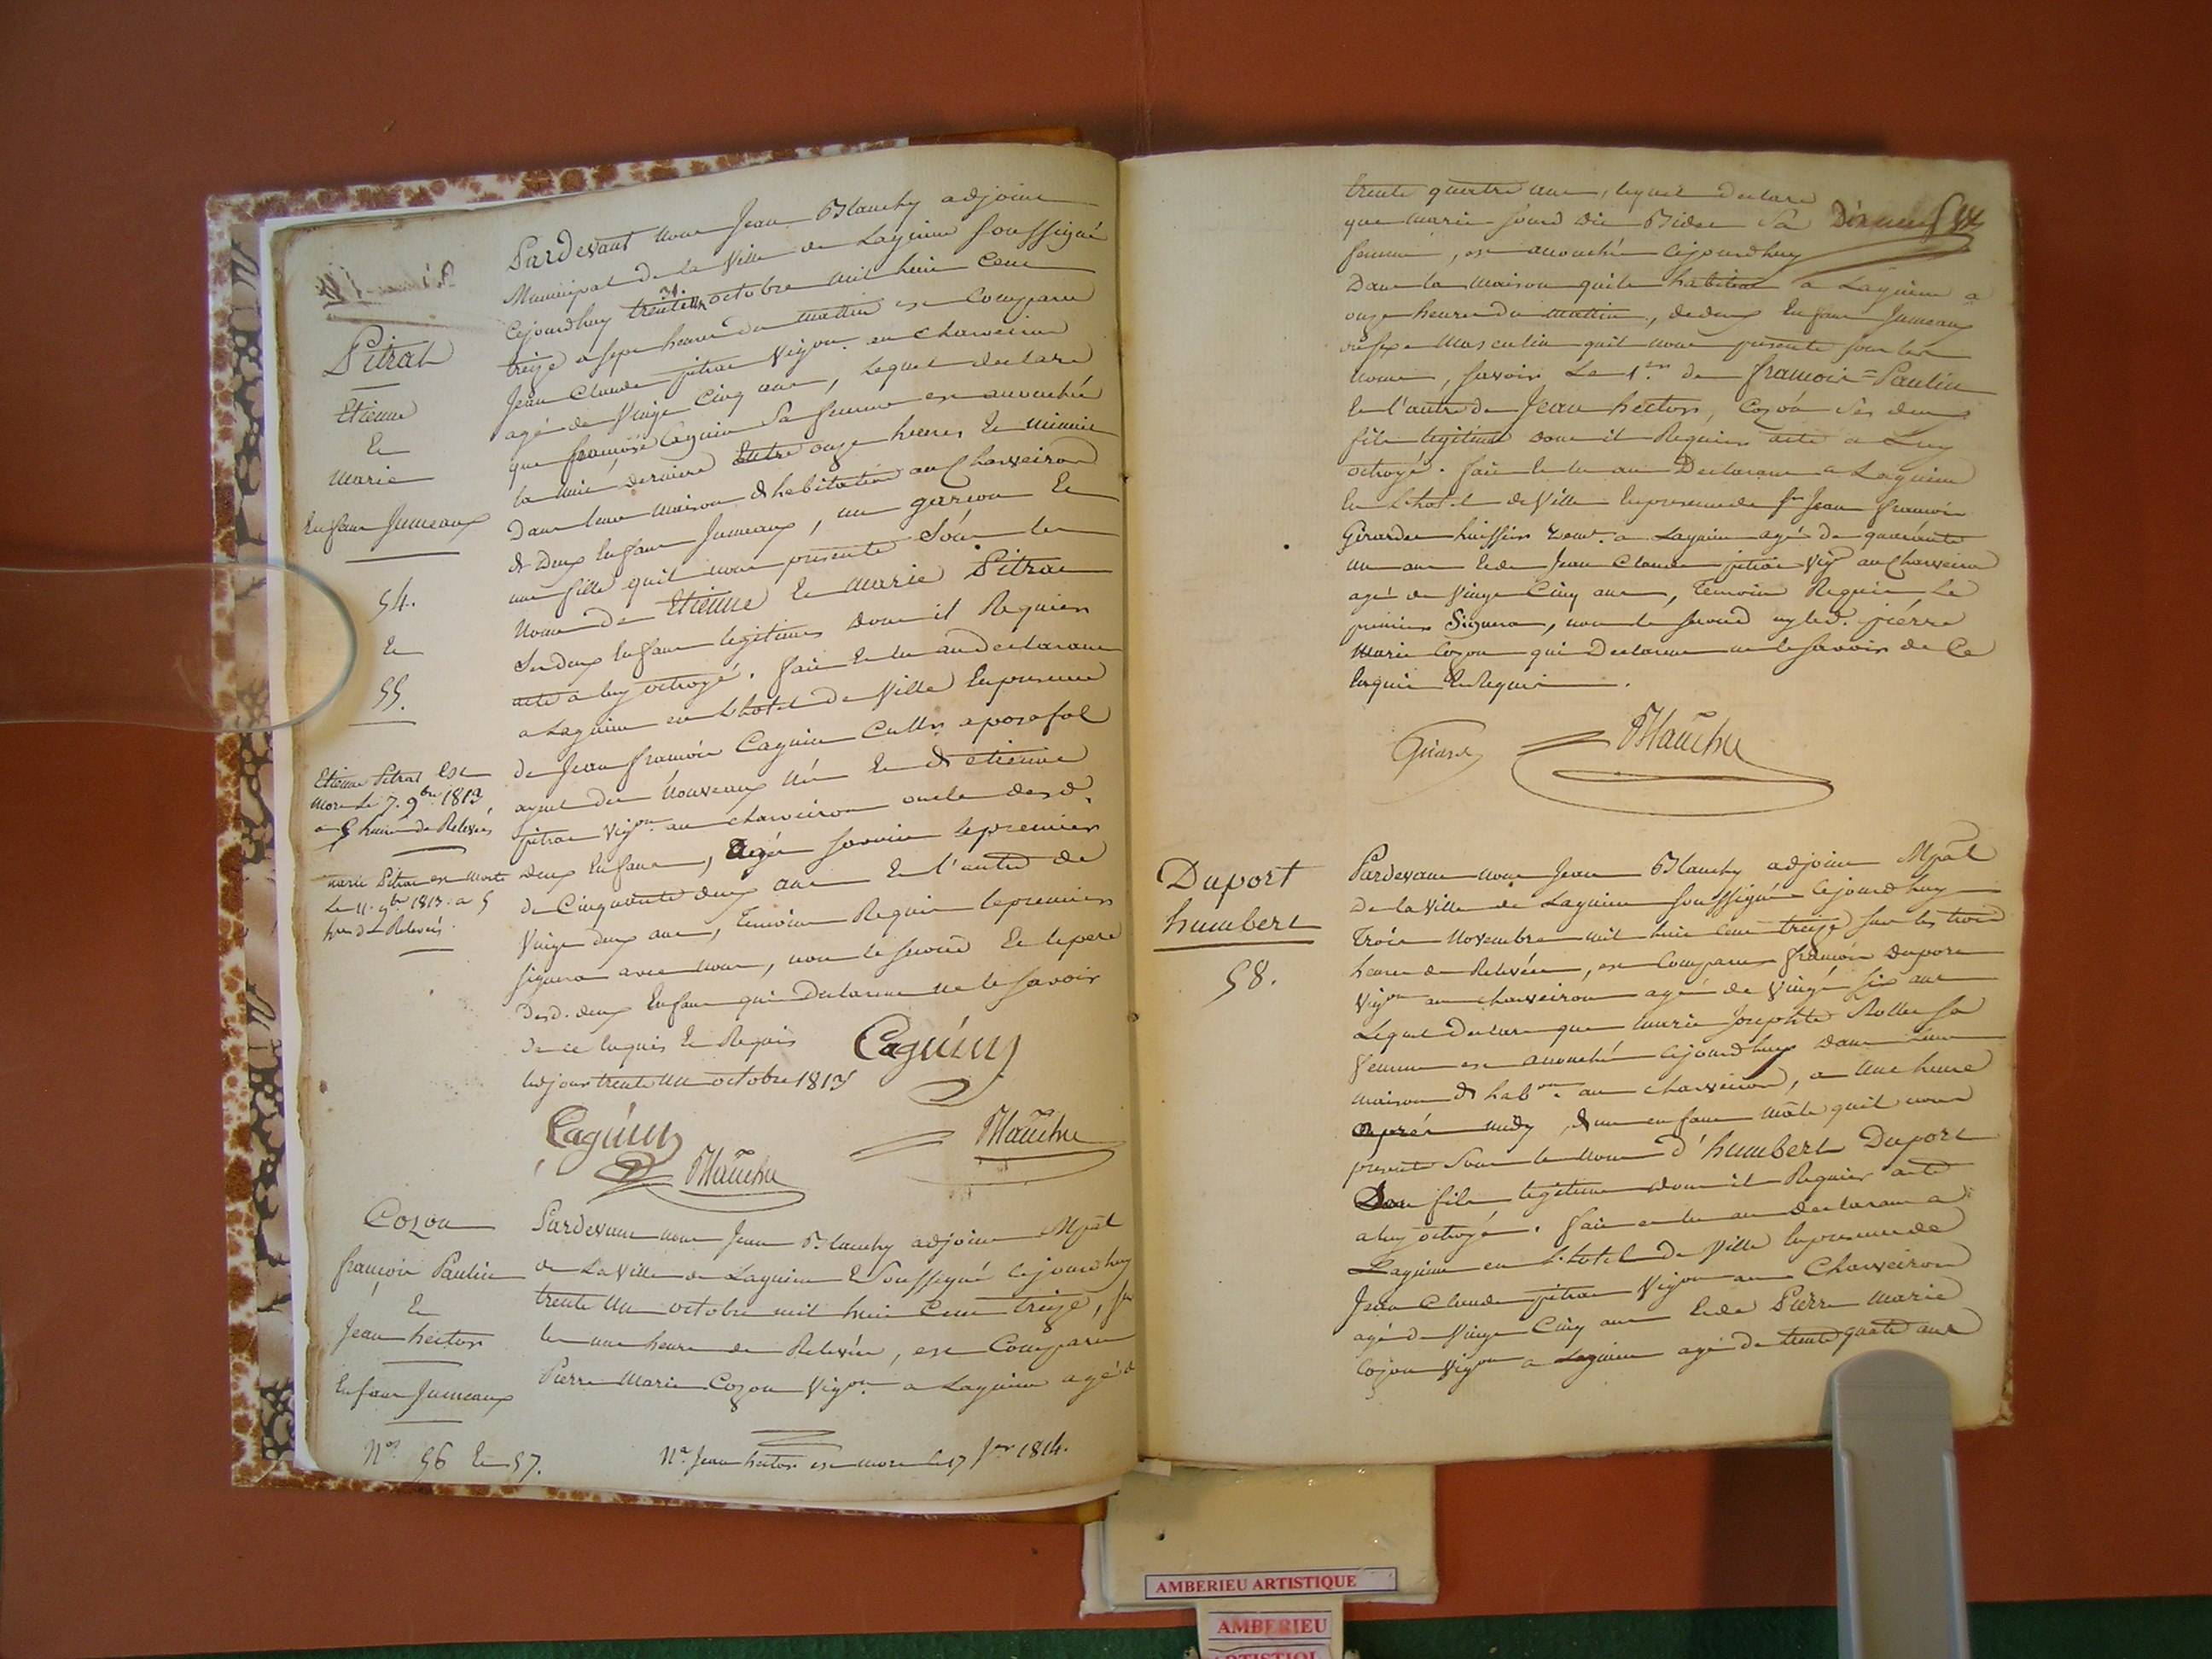 Pitrat
Etienne
Et
Marie
Enfans Jumeaux
54.
Et
55.
Etienne Pitrat est
mort le 7. 9bre 1813,
a 5 heures de Relevées
marie Pitrat est morte
Le 11. 9bre 1813. a 5
hres de Relevées.
Pardevant nous Jean Blanchy adjoint
Municipal de la Ville de Lagnieu soussigné
Cejourdhuy trente un 31. octobre mil huit Cent
treize a sept heures du mattin est Comparu
Jean Claude pitrat Vigon. au charveiron
agé de Vingt Cinq ans, Lequel declare
que françoise Caguin Sa femme est accouchée
la nuit derniere Entre onze heures Et minuit
Dans leur maison d'habitation au Charveiron
de deux Enfans Jumeaux, un garcon Et
une fille quil nous presente Sous les
Noms de Etienne Et marie Pitrat
Ses deux Enfans legitimes dont il Requiert
acte a luy octroyé. fait Et lu au declarant
a Lagnieu en L'hotel de Ville En presence
de Jean françois Caguin Cultr a posafol
ayeul des Nouveaux Nés Et d'etienne
pitrat Vigon. au charveiron oncle desd.
deux Enfans, Agés savoir le premier
de Cinquante deux ans Et l'autre de
Vingt deux ans, Temoins Requis le premier
signera avec nous, non le second Et le pere
desd. deux Enfans qui Declarent ne le savoir
de ce Enquis Et Requis
ledjour trente un octobre 1813
Caguin
Caguin
Blanchy
Blanchy
Cozon
françois Paulin
Et
Jean hector
Enfans Jumeaux
Nos 56 Et 57.
Pardevant nous Jean Blanchy adjoint Mpal
de La Ville de Lagnieu Soussigné Cejourdhuy
trente un octobre mil huit Cent treize, sur
les une heure de Relevée, est Comparu
Pierre Marie Cozon Vigon a Lagnieu agé de
Na Jean hector est mort le 17 Jer 1814.
trente quatre ans, lequel declare
que marie sourd dit Bidet Sa
femme, est accouchée cejourdhuy
Dans la maison quils habitent a Lagnieu a
onze heures du mattin, de deux Enfans Jumeaux
du sexe Masculin quil nous presente sous les
noms, savoir Le 1er. de françois=Paulin
Et l'autre de Jean hector, Cozon Ses deux
fils legitimes dont il Requiert acte a Luy
octroyé. fait Et lu au Declarant a Lagnieu
En L'hotel de Ville En presence de sr Jean françois
Girardet huissier demt. a Lagnieu agé de quarante
un ans Et de Jean Claude pitrat Vigon au Charveiron
agé de Vingt Cinq ans, Temoins Requis Le
premier Signera, non le second ny led. pierre
Marie Cozon qui Declarent ne le savoir de Ce
Enquis Et Requis.
Girardet
Blanchy
Duport
humbert
58.
Pardevant nous Jean Blanchy adjoint Mpal
de la Ville de Lagnieu soussigné Cejourdhuy
Trois Novembre mil huit Cent treize sur les trois
heures de Relevées, est Comparu françois Duport
Vigon au charveiron agé de Vingt six ans
Lequel Declare que marie Josephte Rollet sa
femme est accouchée cejourdhuy dans leur
maison d'habon. au charveiron, a une heure
après midy, d'un enfant mâle quil nous
presente Sous le nom d'humbert Duport
Son fils legitime dont il Requiert acte
a luy octroyé. fait et lu au declarant a
Lagnieu en L'hotel de Ville En presence de
Jean Claude pitrat Vigon au Charveiron
agé de Vingt Cinq ans Et de Pierre Marie
Cozon Vigon a Lagnieu agé de trente quatre ans
AMBERIEU ARTISTIQUE
AMBERIEU